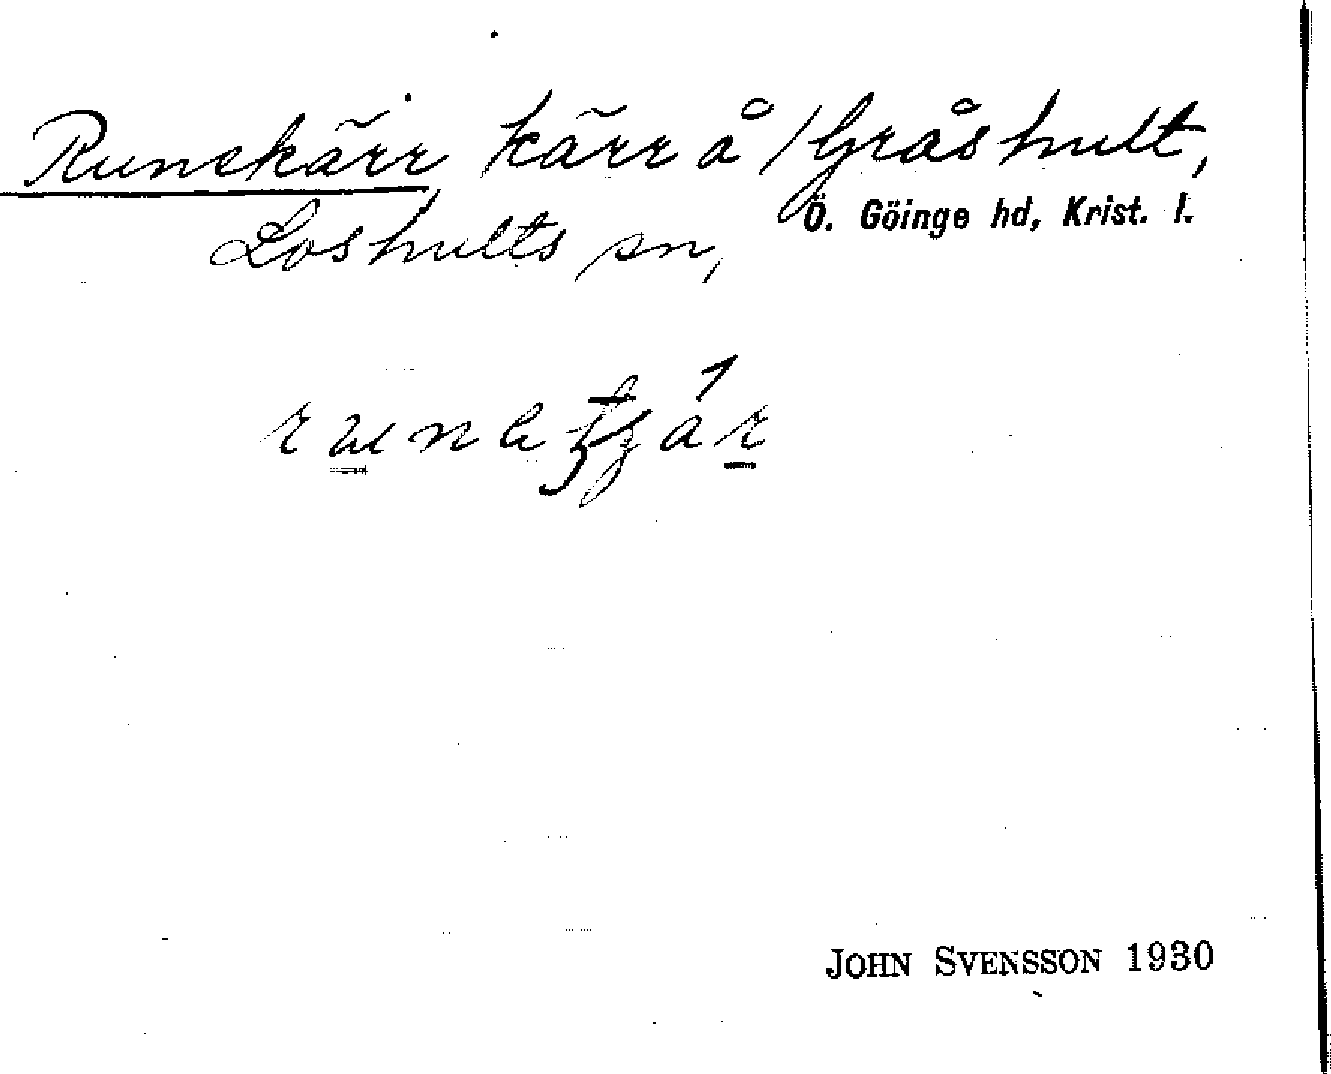 Runekärr kärr å /Gråshult,
Loshults sn, Ö. Göinge hd, Krist. l.
JOHN SVENSSON 1930